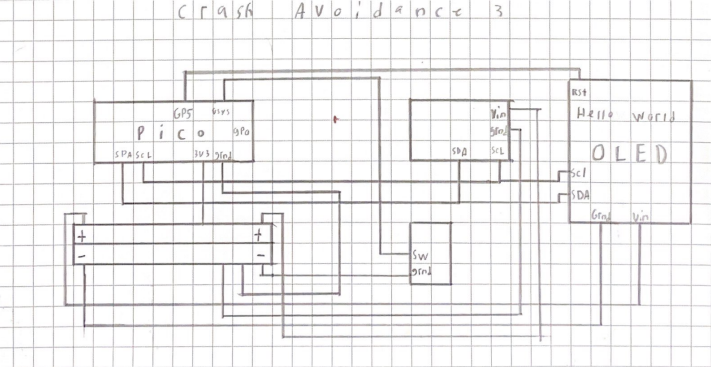 Crash Avoidance 3
GP5 VSYS
Pico gP0
SDA SCL 3V3 grnd
Vin
grnd
SDA SCL
Rst
Hello world
OLED
Scl
SDA
Grnd Vin
+ +
- -
SW
grnd